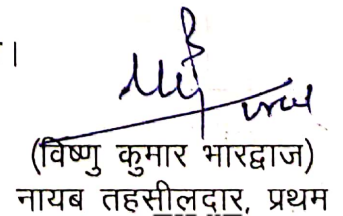 ।
(विष्णु कुमार भारद्वाज)
नायब तहसीलदार, प्रथम